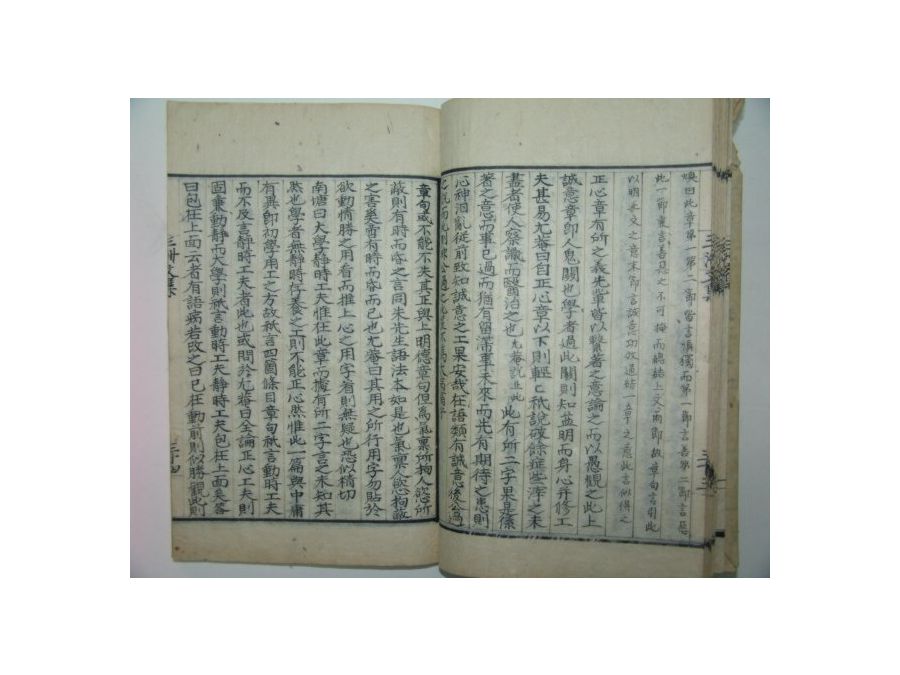 煥曰此章第一第二節當言愼獨而第一節言善第二節言惡
此一節兼言善惡之不可掩而總結上文兩節故章句言引此
以明上文之意末節言誠意功效通結一章之意此言似得之
正心章有所之義先輩皆以繫著之意論之而以愚觀之此上
誠意章卽人鬼關也學者過此關則知益明而身心幷修工
夫甚易尤庵曰自正心章以下則輕輕祇說破餘證些滓之未
盡者使人察識而醫治之也 尤庵說止此 此有所二字果是係
著之意而事已過而猶有留滯事未來而先有期待之患則
心神汨亂從前致知誠意之工果安哉在語類有誠意後公過
章句或不能不失其正與上明德章句但爲氣稟所拘人欲所
蔽則有時而昏之言同朱先生語法本如是也氣稟人欲拘蔽
之害奚啻有時而昏而已也尤庵曰其用之所行用字勿貼於
欲動情勝之用看而推上心之用字看則無疑也恐似稍切
南塘曰大學靜時工夫惟在此章而據有所二字言之未知其
然也學者無靜時存養之工則不能正心然惟此一篇與中庸
有異卽初學用工之方故祇言四箇條目章句祇言動時工夫
而不及言靜時工夫者此也或問於尤庵曰全論正心工夫則
固兼動靜而大學則祇言動時工夫靜時工夫包在上面奚答
曰包在上面云者有語病若改之曰已在動前則似勝觀此則
三州文集
三十四